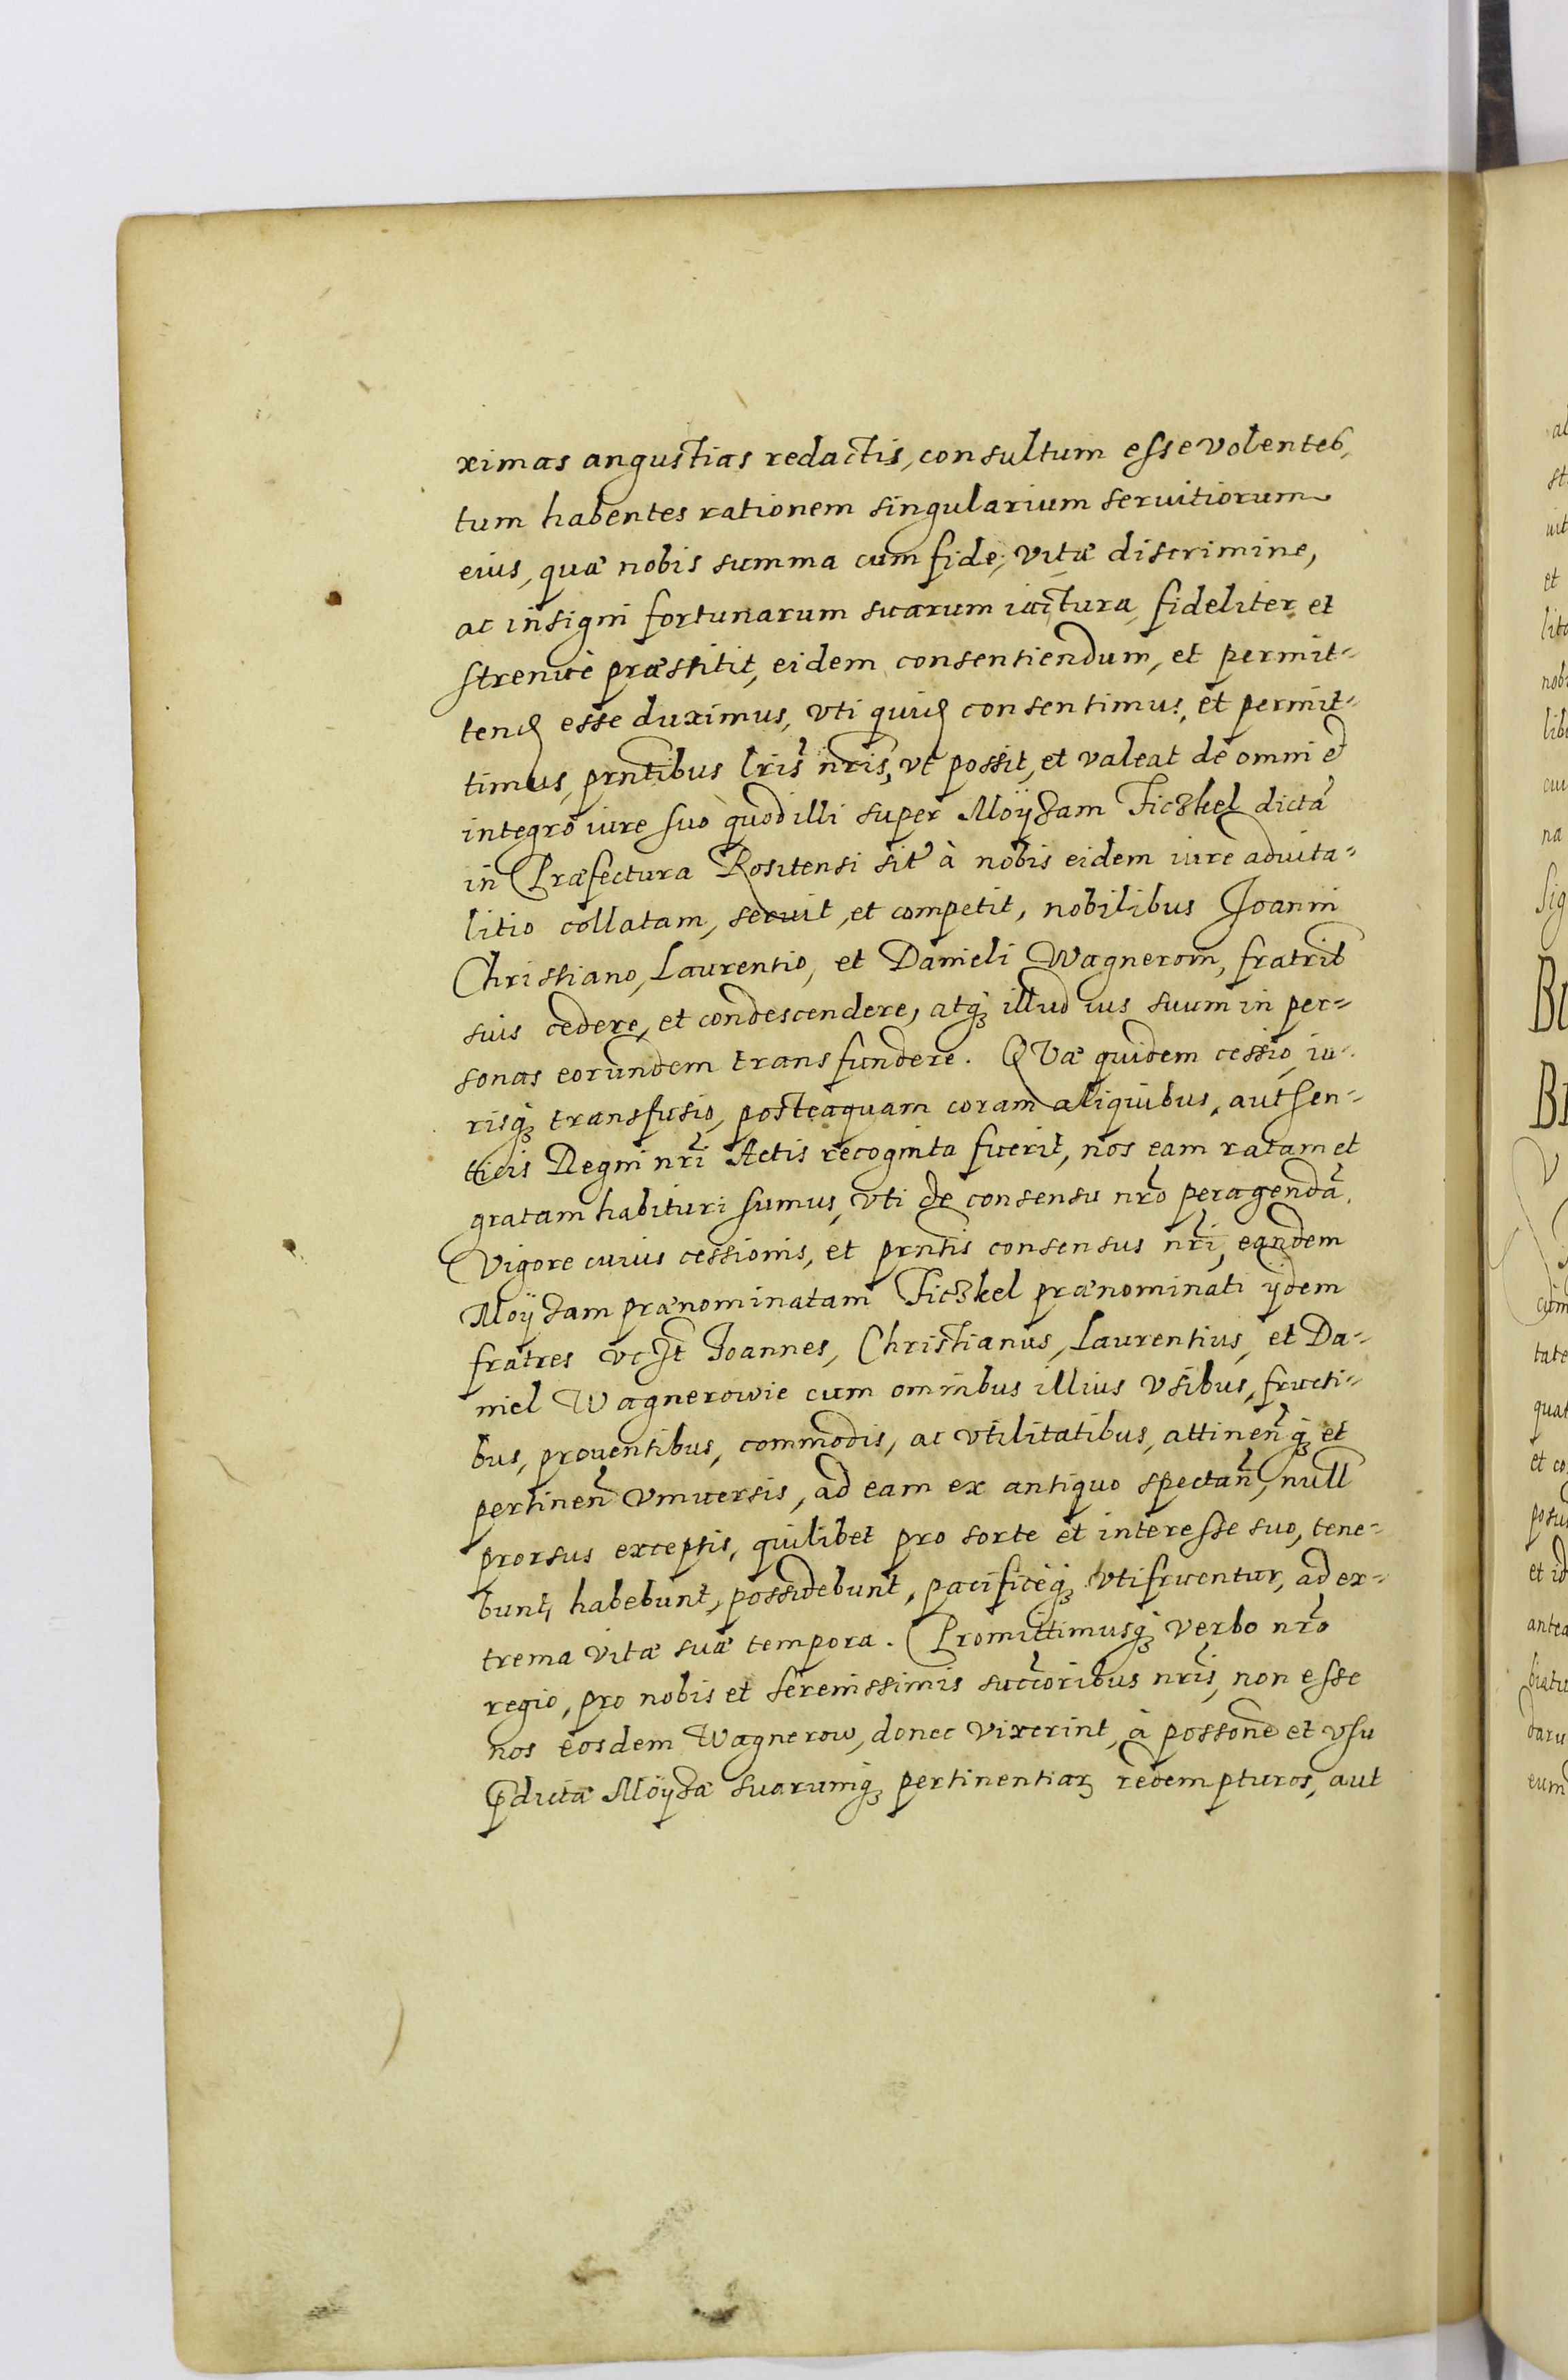 ximas angustias redactis, consultum esse volentes,
tum habentes rationem singularium seruitiorum
eius, quæ nobis summa cum fide, vitæ discrimine,
ac insigni fortunarum suarum iactura, fideliter et
strenuè præstitit, eidem consentiendum, et permit-
tend esse duximus, vti quid consentimus, et permit-
timus, prntibus lris nris, vt possit, et valeat de omni et
integro iure suo quod illi super Moÿzam Ficzkel dictã
in Præfectura Rositensi sitã à nobis eidem iure aduita-
litio collatam, seruit, et competit, nobilibus Joanni
Christiano, Laurentio, et Danieli Wagnerom, fratrib
suis cedere, et condescendere, atq illud ius suum in per-
sonas eorundem transfundere. QVæ quidem cessio, iu-
risq transfusio, posteaquam coram aliquibus, authen-
ticis Regni nri Actis recognita fuerit, nos eam ratam et
gratam habituri sumus, vti de consensu nro peragendã.
Vigore cuius cessionis, et prntis consensus nri, eandem
Moÿzam prænominatam Ficzkel prænominati ijdem
fratres vczt Joannes, Christianus, Laurentius, et Da-
niel Wagnerowie cum omnibus illius vsibus, fructi-
bus, prouentibus, commodis, ac vtilitatibus, attinen q et
pertinen vniuersis, ad eam ex antiquo spectan, null
prorsus exceptis, quilibet pro sorte et interesse suo, tene-
bunt, habebunt, possidebunt, pacificèq vtifruentur, ad ex-
trema vitæ suæ tempora. Promittimusq verbo nro
regio, pro nobis et serenissimis succoribus nris, non esse
nos eosdem Wagnerow, donec vixerint, à possone et vsu
pdictæ Moÿzæ suarumq pertinentiar redempturos, aut